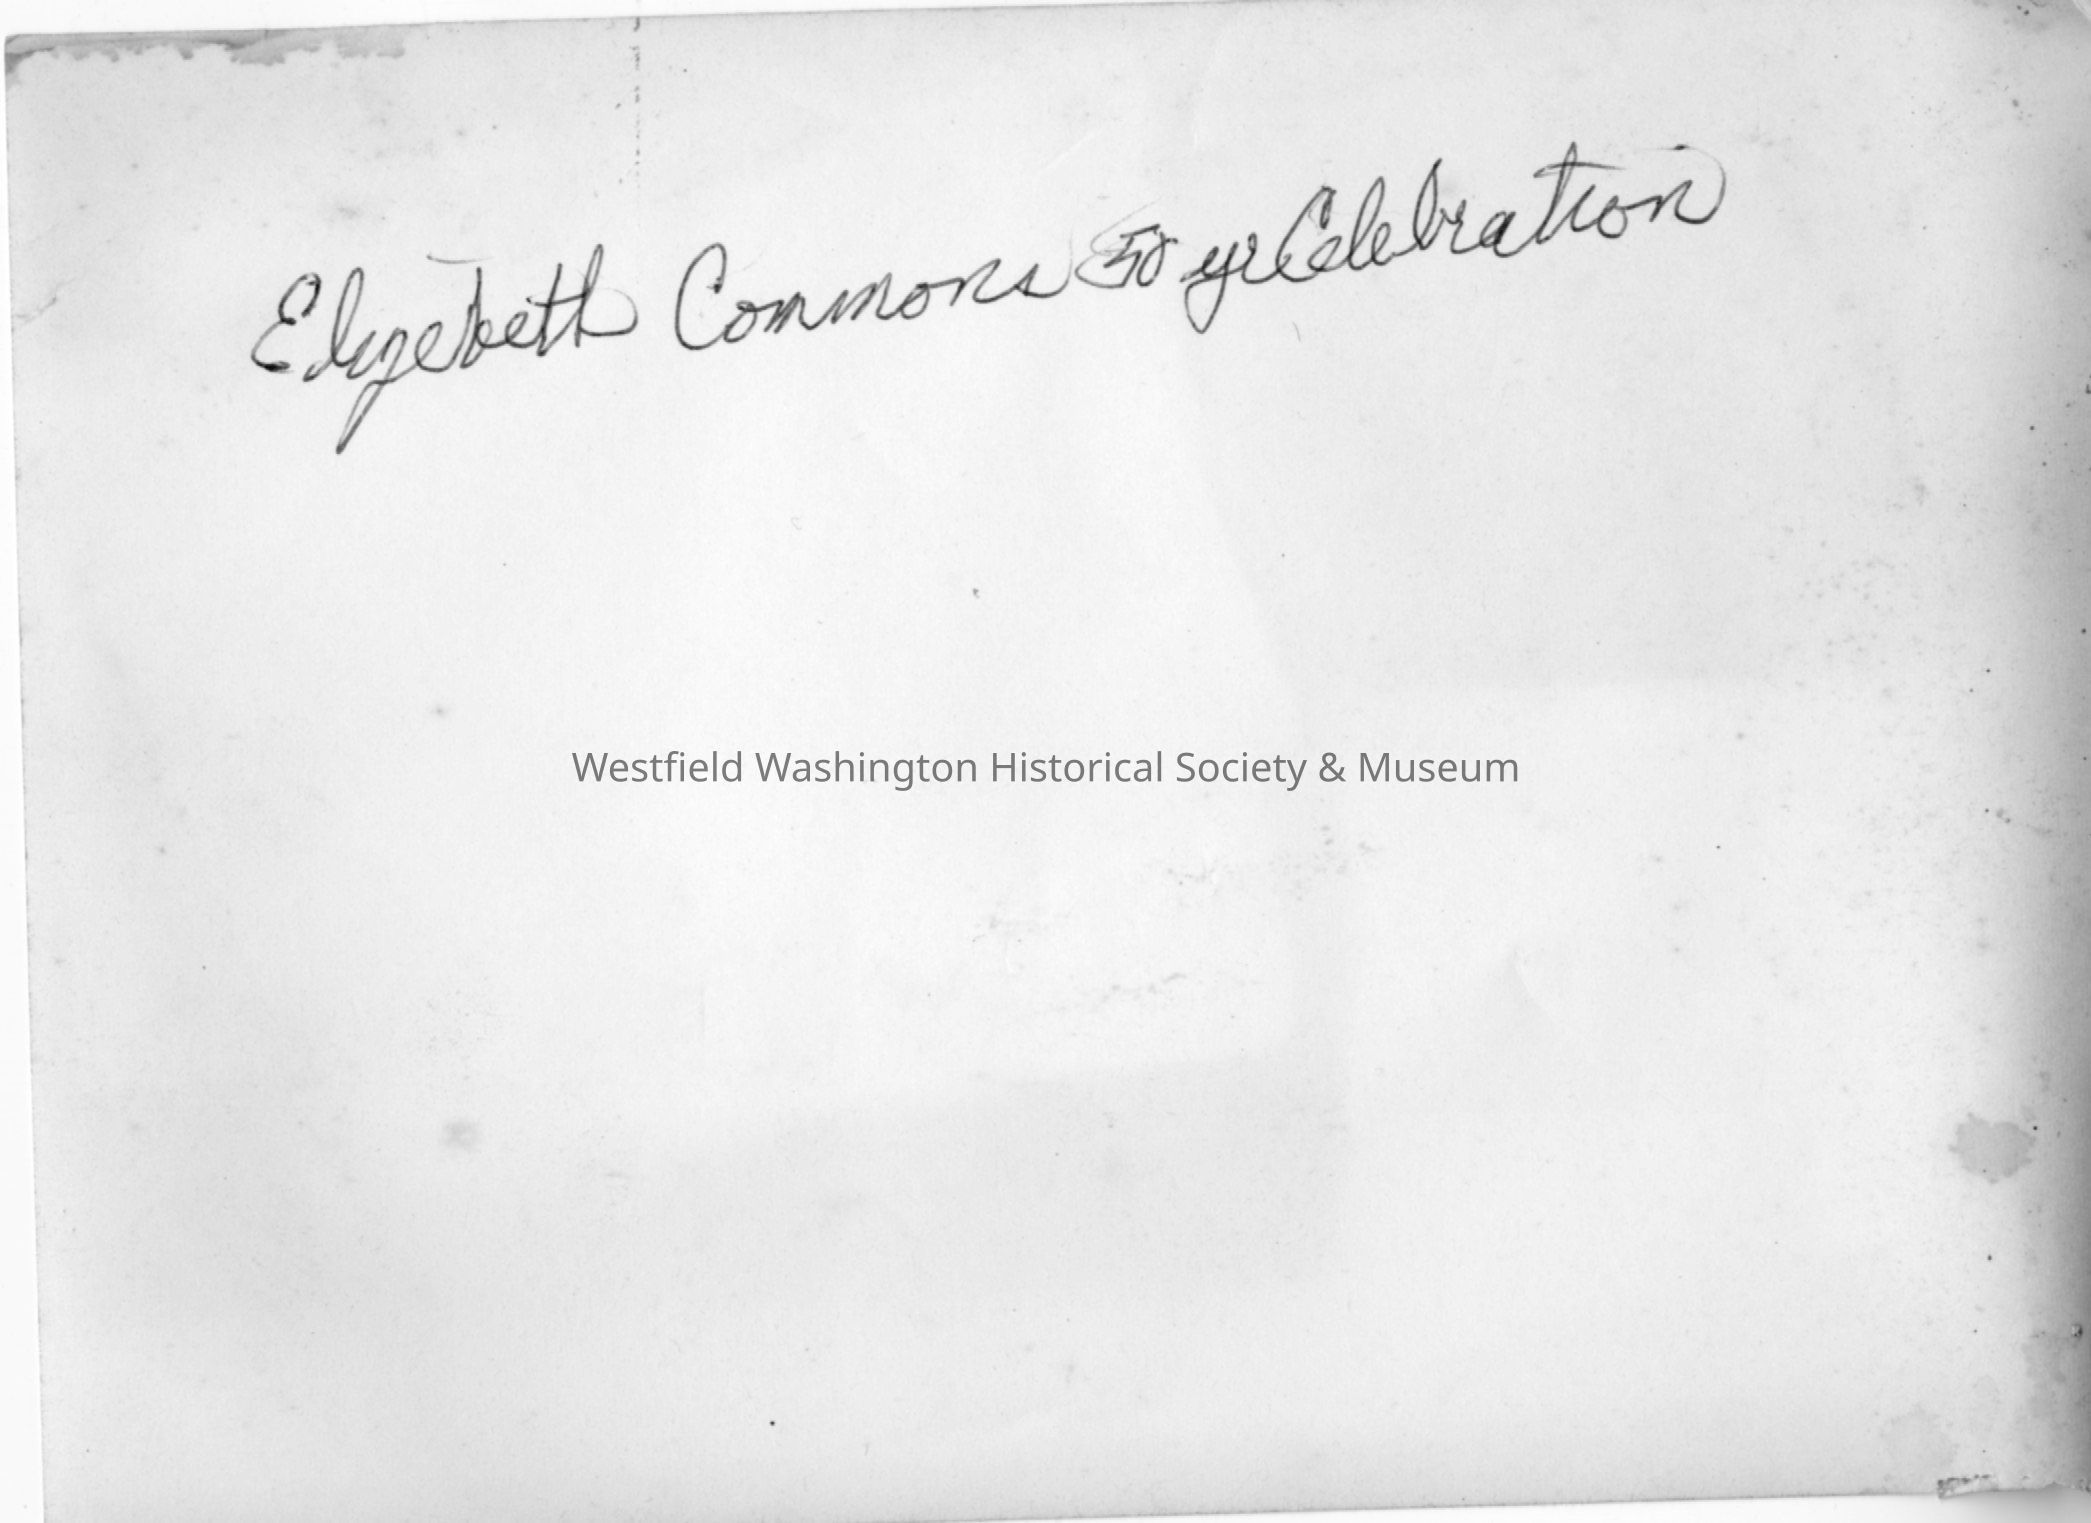 Elizebeth Commons 50 yr Celebration
Westfield Washington Historical Society & Museum